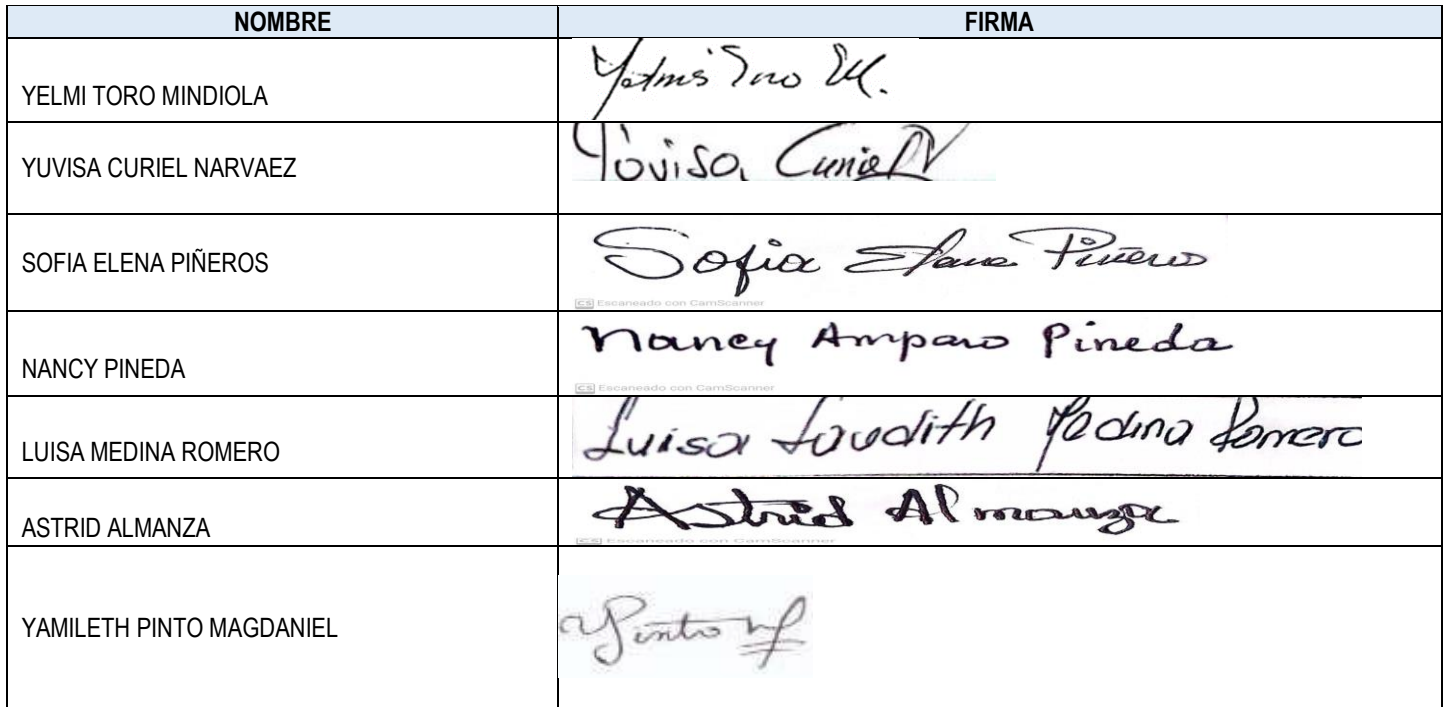 NOMBRE FIRMA
YELMI TORO MINDIOLA Yelmis Toro M.
YUVISA CURIEL NARVAEZ Yuvisa Curiel N
SOFIA ELENA PIÑEROS Sofia Elena Piñeros
CS Escaneado con CamScanner
NANCY PINEDA Nancy Amparo Pineda
CS Escaneado con CamScanner
LUISA MEDINA ROMERO Luisa Medina Romero
ASTRID ALMANZA Astrid Almanza
CS Escaneado con CamScanner
YAMILETH PINTO MAGDANIEL YPinto M